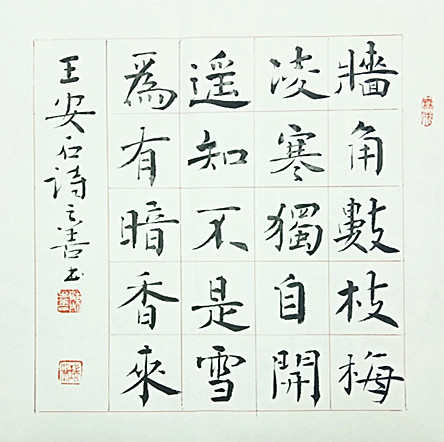 牆角數枝梅
凌寒獨自開
遥知不是雪
爲有暗香來
王安石诗之善书